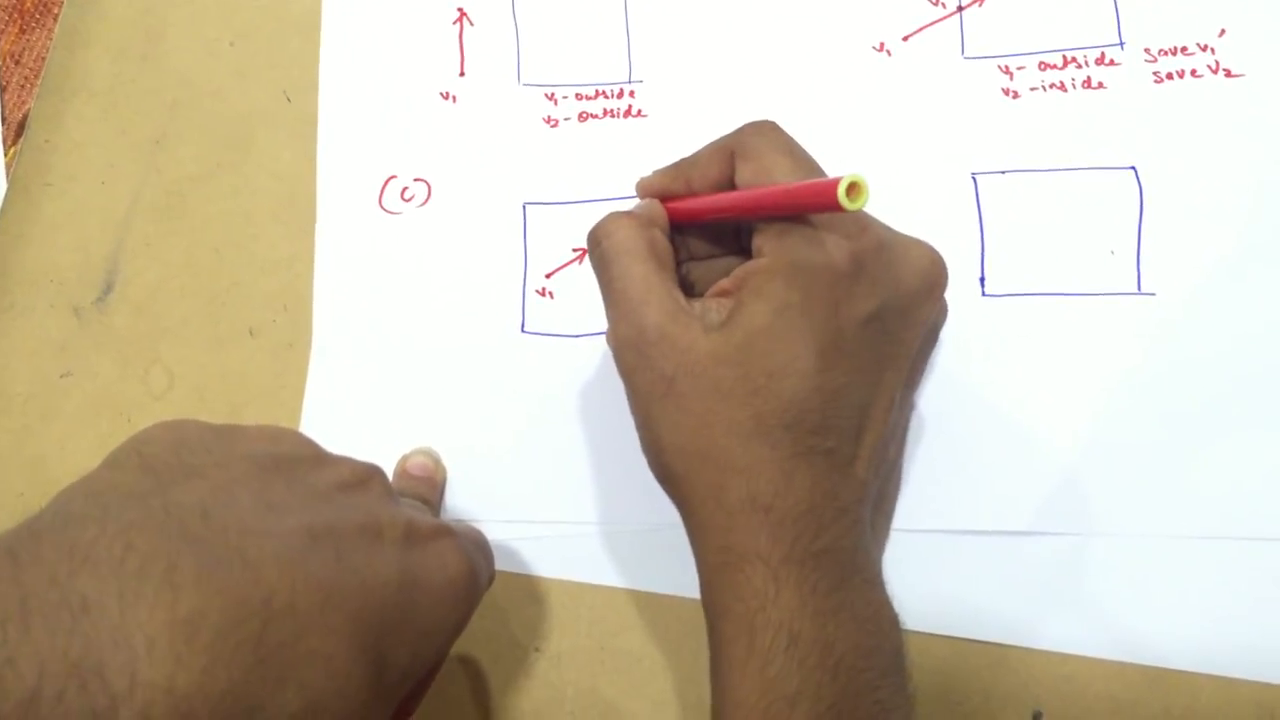 v₁
v₁ - outside
v₂ - outside
v₁'
v₁
v₁ - outside
v₂ - inside
save v₁'
save v₂
(c)
v₁